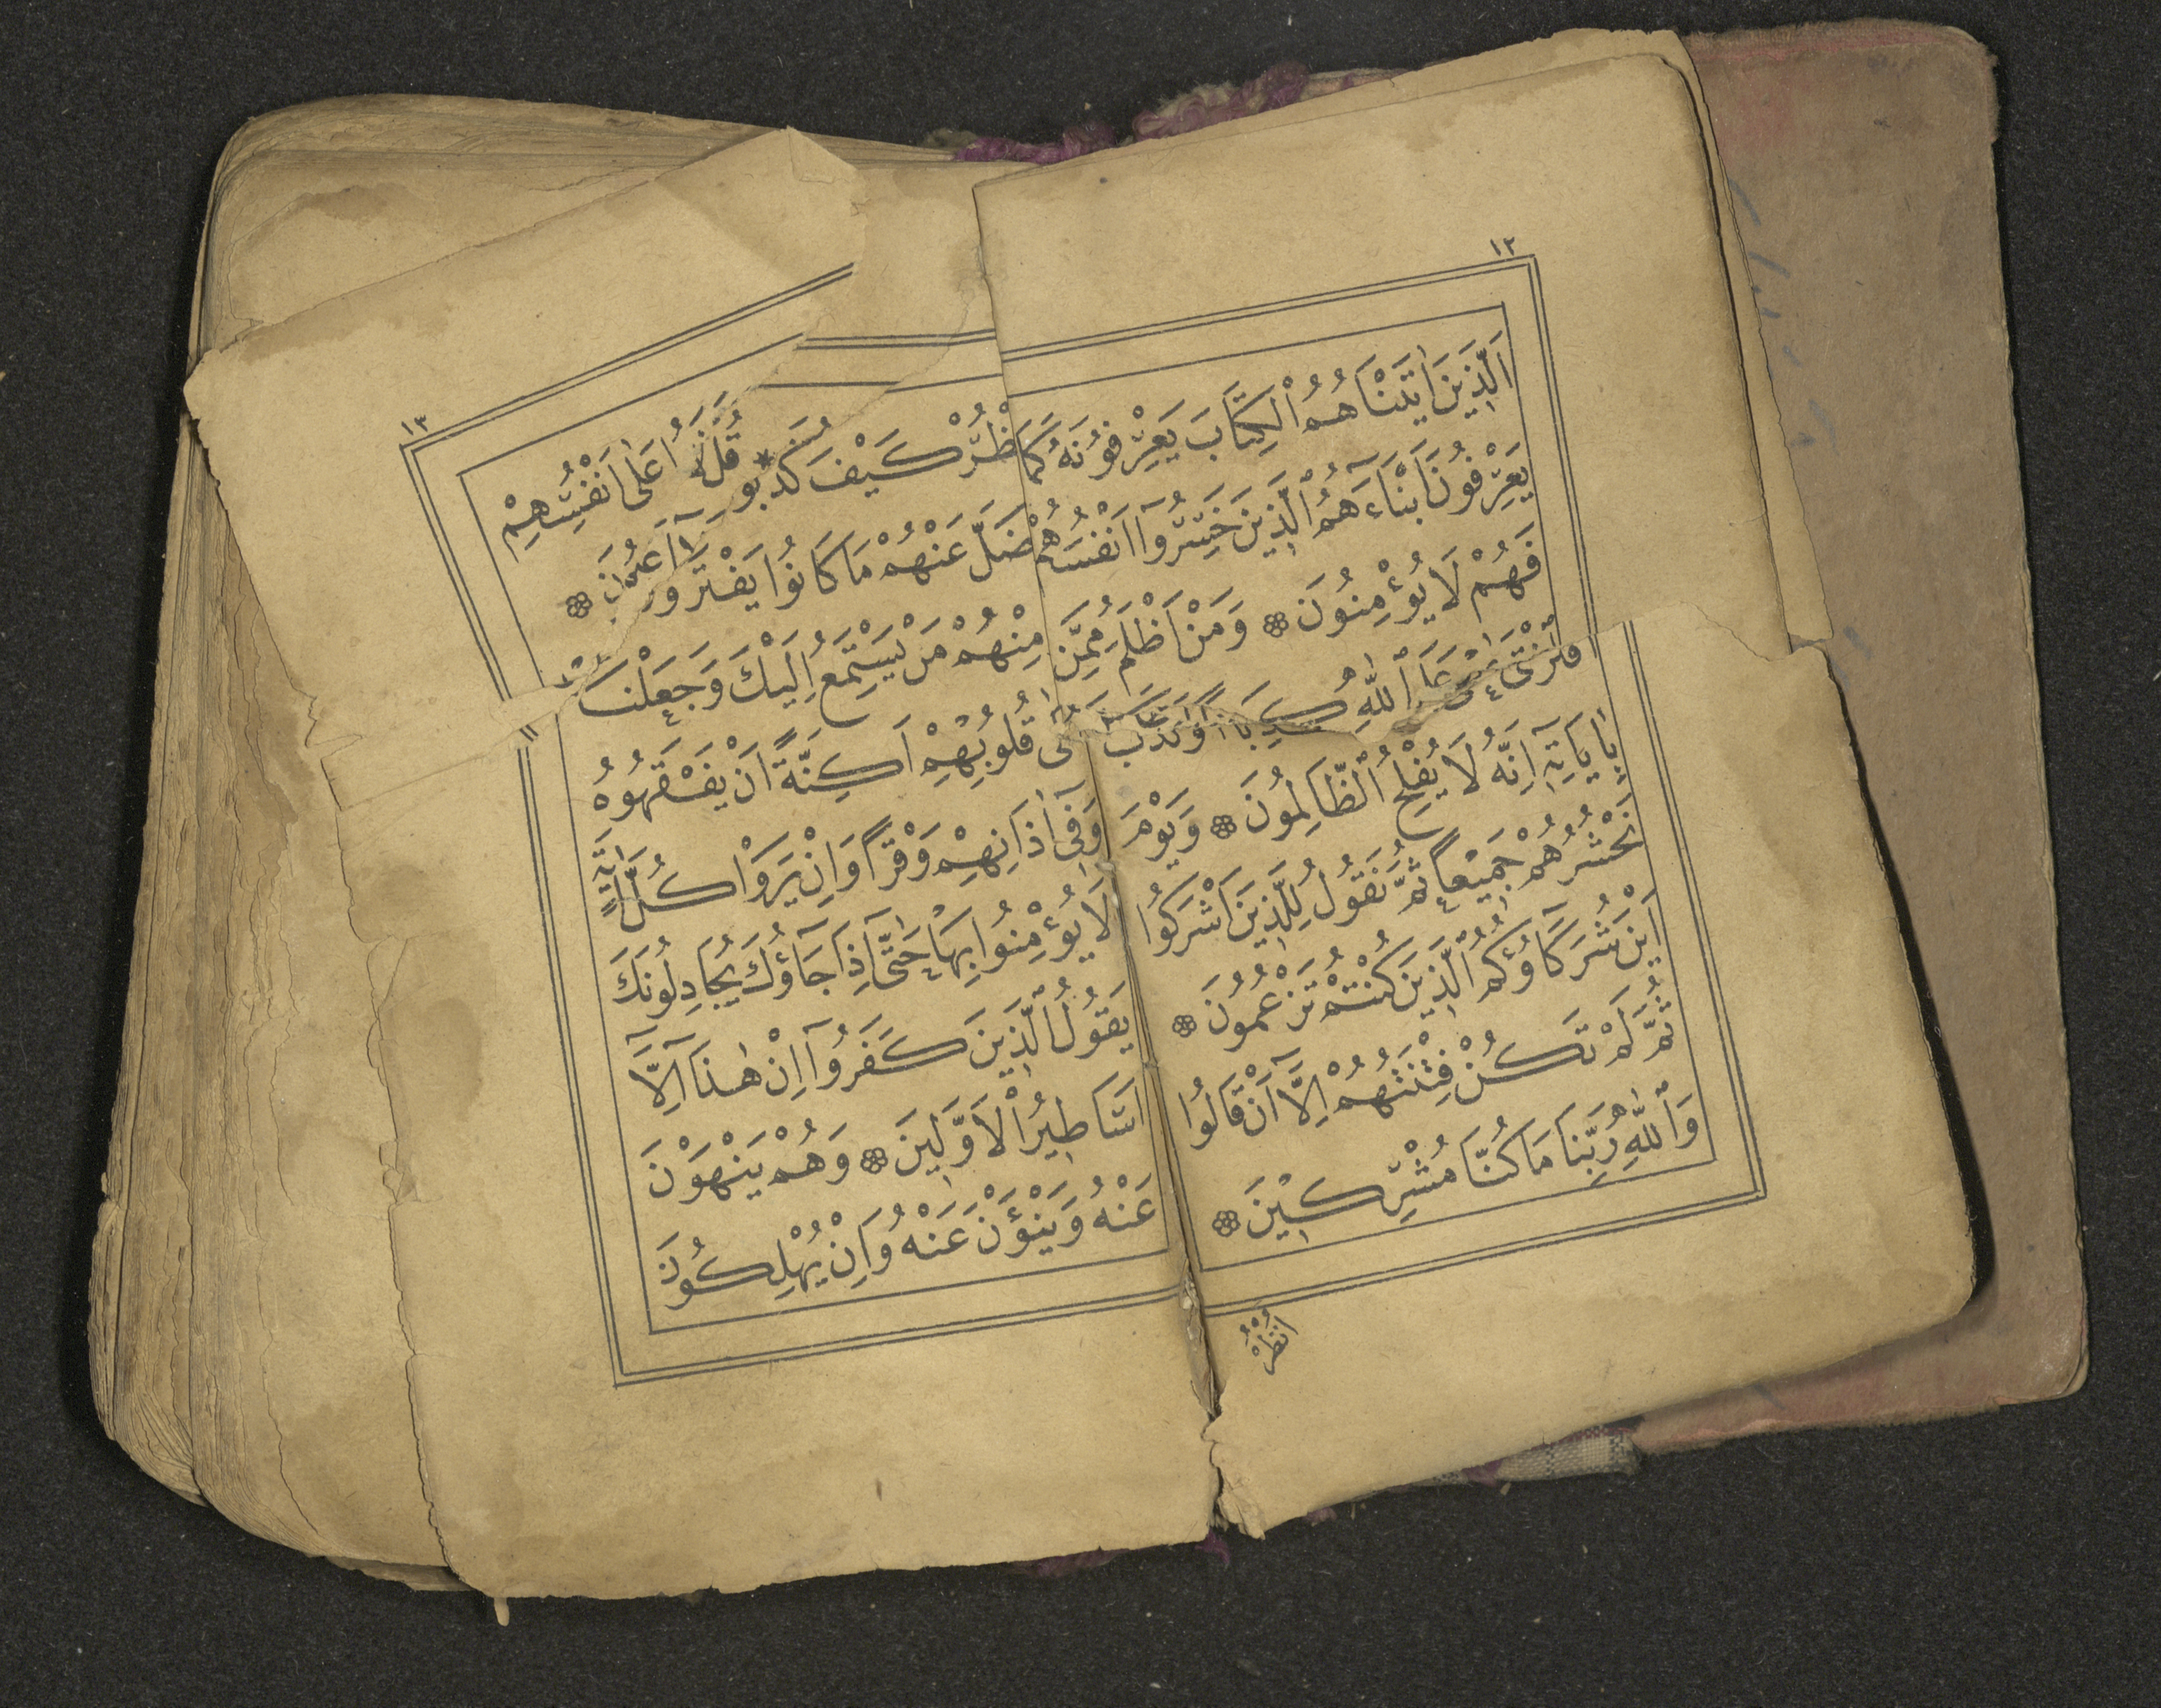 ١٢
اَلَّذٖينَ اٰتَيْنَاهُمُ الْكِتَابَ يَعْرِفُونَهُ كَمَا
يَعْرِفُونَ اَبْنَٓاءَهُمُ الَّذٖينَ خَسِرُٓوا اَنْفُسَهُمْ
فَهُمْ لَا يُؤْمِنُونَ ۞ وَمَنْ اَظْلَمُ مِمَّنِ
افْتَرٰى عَلَى اللّٰهِ كَذِبًا اَوْ كَذَّبَ
بِاٰيَاتِهٖٓ اِنَّهُ لَا يُفْلِحُ الظَّالِمُونَ ۞ وَيَوْمَ
نَحْشُرُهُمْ جَمٖيعًا ثُمَّ نَقُولُ لِلَّذٖينَ اَشْرَكُٓوا
اَيْنَ شُرَكَٓاؤُكُمُ الَّذٖينَ كُنْتُمْ تَزْعُمُونَ ۞
ثُمَّ لَمْ تَكُنْ فِتْنَتُهُمْ اِلَّٓا اَنْ قَالُوا
وَاللّٰهِ رَبِّنَا مَا كُنَّا مُشْرِكٖينَ ۞
اُنْظُرْ
١٣
ظُرْ كَيْفَ كَذَبُوا عَلٰٓى اَنْفُسِهِمْ
ضَلَّ عَنْهُمْ مَا كَانُوا يَفْتَرُونَ ۞
مِنْهُمْ مَنْ يَسْتَمِعُ اِلَيْكَ وَجَعَلْنَا
قُلُوبِهِمْ اَكِنَّةً اَنْ يَفْقَهُوهُ
وَفٖٓي اٰذَانِهِمْ وَقْرًا وَاِنْ يَرَوْا كُلَّ اٰيَةٍ
لَا يُؤْمِنُوا بِهَا حَتّٰٓى اِذَا جَٓاؤُكَ يُجَادِلُونَكَ
يَقُولُ الَّذٖينَ كَفَرُٓوا اِنْ هٰذَٓا اِلَّٓا
اَسَاطٖيرُ الْاَوَّلٖينَ ۞ وَهُمْ يَنْهَوْنَ
عَنْهُ وَيَنْـَٔوْنَ عَنْهُ وَاِنْ يُهْلِكُونَ